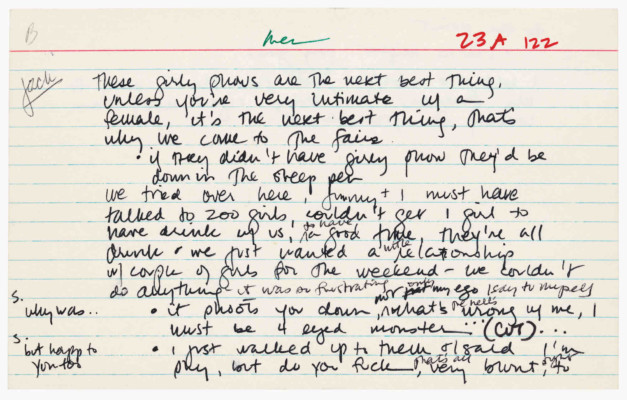 B
men
23A 122
Jack
These girly shows are the next best thing,
unless you're very intimate w/ a
female, it's the next best thing, thats
why we come to the fairs.
• if they didn't have girly show they'd be
down in the sheep pen
we tried over here, Jimmy + I must have
talked to 200 girls, couldn't get 1 girl to
have drink w/ us, to have a good time, they're all
drunk • we just wanted a little relationship
w/ couple of girls for the weekend - we couldn't
do anything it was so frustrating my ego I say to myself
S. why was.. • it shoots you down, what's the hell's wrong w/ me, I
must be 4 eyed monster... (CUT)...
S. but happ to you too • I just walked up to them & I said I'm
, but do you fuck, that's all very blunt, to